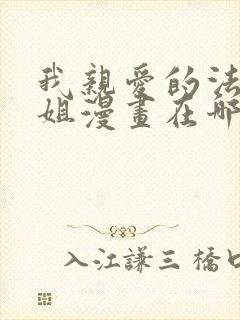 我親愛的法
姐漫畫在哪
入江謙三橋口